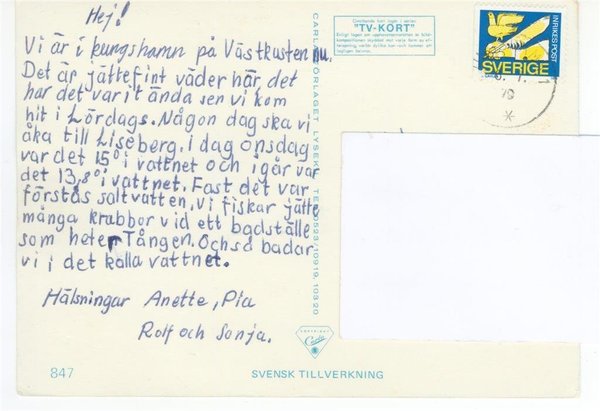 Hej!
Vi är i kungshamn på Västkusten nu.
Det är jättefint väder här, det
har det varit ända sen vi kom
hit i Lördags. Någon dag ska vi
åka till Liseberg, i dag onsdag
var det 15° i vattnet och igår var
det 13,8° i vattnet. Fast det var
förstås saltvatten. Vi fiskar jätte
många krabbor vid ett badställe
som heter Tången. Också badar
vi i det kalla vattnet.
Hälsningar Anette, Pia
Rolf och Sonja.
847
CARLA-FÖRLAGET LYSEKIL TEL 0523/10919, 10320
COPYRIGHT
Carla
SVENSK TILLVERKNING
"TV-KORT"
INRIKES POST
SVERIGE
79